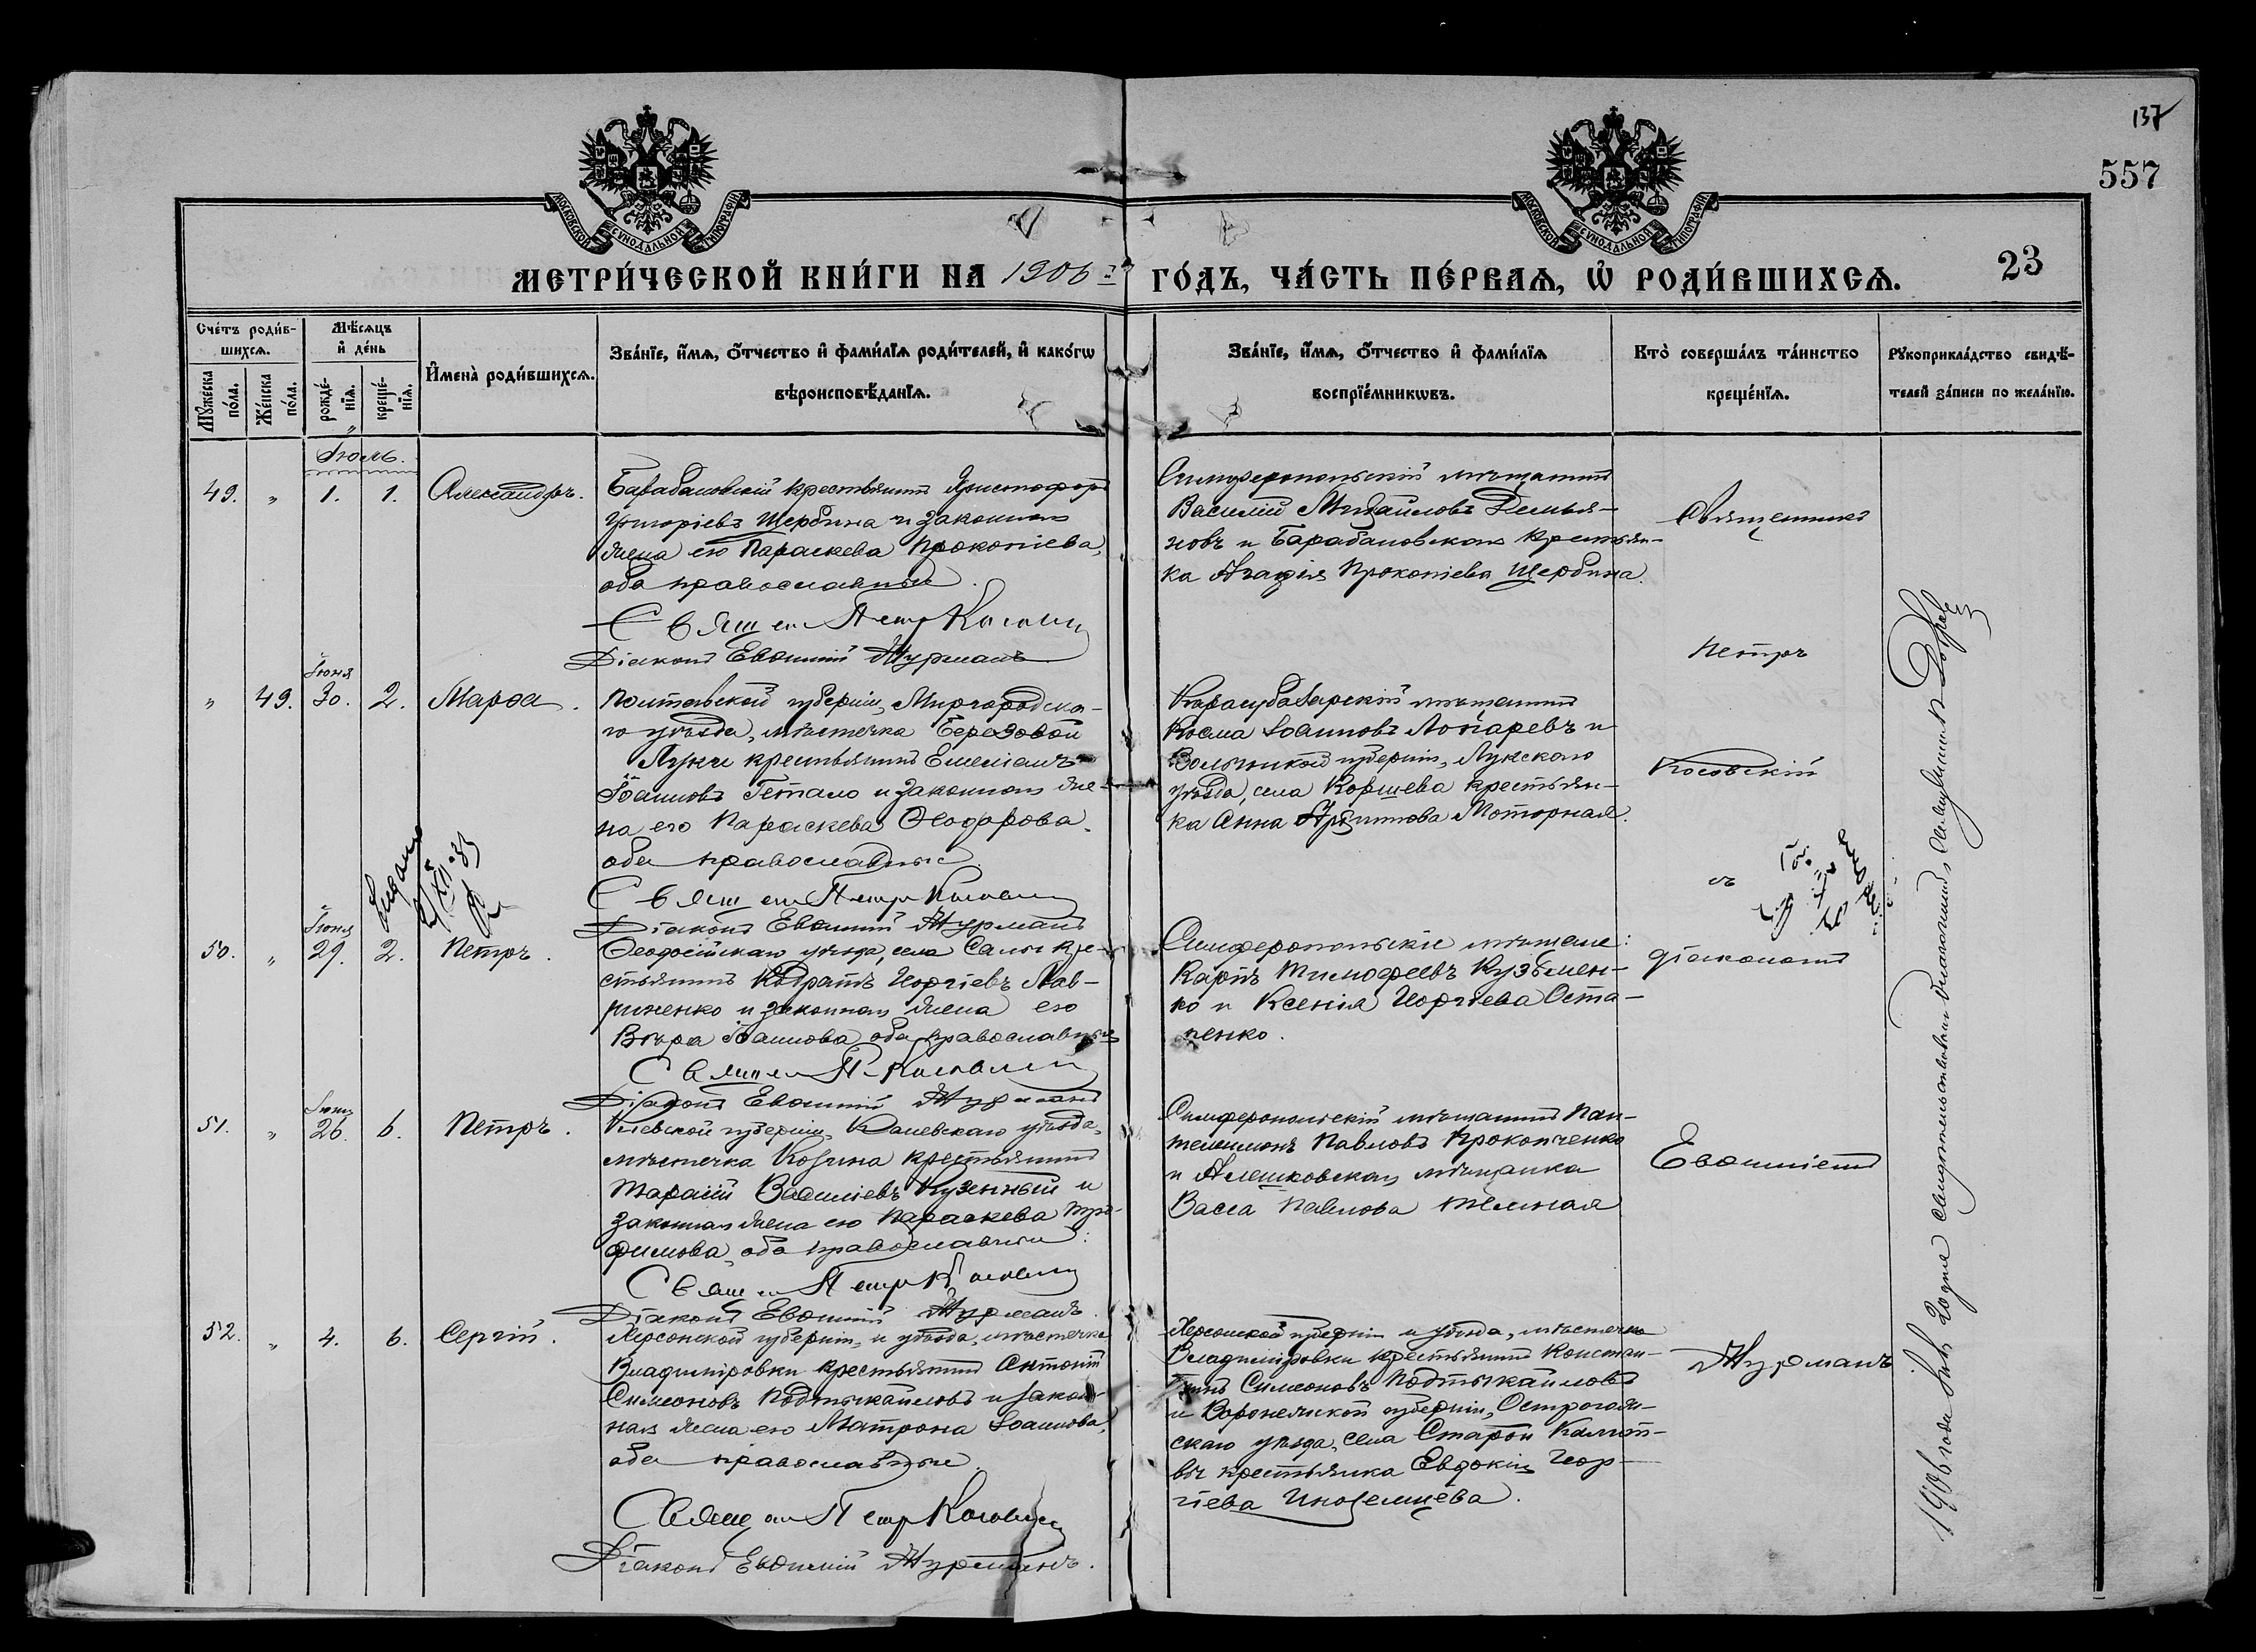 137
557
23
МОСКОВСКОЙ СѴНОДАЛЬНОЙ ТИПОГРАФІИ
МОСКОВСКОЙ СѴНОДАЛЬНОЙ ТИПОГРАФІИ
МЕТРИ́ЧЕСКОЙ КНИ́ГИ НА 1906 й ГО́ДЪ, ЧА́СТЬ ПЕ́РВАѦ, Ѡ҆ РОДИ́ВШИХСѦ.
Сче́тъ роди́в-
шихсѧ.
Мꙋ́жеска по́ла.
Же́нска по́ла.
Мѣ́сѧцъ
и҆ де́нь
рожде́-
нїѧ.
креще́-
нїѧ.
И҆мена̀ роди́вшихсѧ.
Зва́нїе, и҆́мѧ, ѻ҆́тчество и҆ фами́лїѧ роди́телей, и҆ како́гѡ
вѣроисповѣ́данїѧ.
Зва́нїе, и҆́мѧ, ѻ҆́тчество и҆ фами́лїѧ
воспрїе́мникѡвъ.
Кто̀ соверша́лъ та́инство
креще́нїѧ.
Рꙋкоприкла́дство свидѣ́-
телей за́писи по жела́нїю.
Іюль.
49. " 1. 1. Александръ.
Барабановскій крестьянинъ Христофоръ
Григоріевъ Щербина и законная
жена его Параскева Прокопіева,
оба православные.
Свящ. Петр Косовскій
Діаконъ Евѳимій Журманъ
Симферопольскій мѣщанинъ
Василій Михайловъ Демья-
новъ и Барабановская крестьян-
ка Агафія Прокопіева Щербина.
Священникъ
Петръ
Косовскій
съ
діакономъ
Евѳиміемъ
Журманъ
Іюня
" 49. 30. 2. Марѳа.
Полтавской губерніи, Миргородска-
го уѣзда, мѣстечка Березовой
Луки крестьянинъ Емеліанъ
Іоанновъ Гетало и законная же-
на его Параскева Ѳеодорова,
оба православные.
Свящ. Петр Косовскій
Діаконъ Евѳимій Журманъ
Карасубазарскій мѣщанинъ
Косма Іоанновъ Лопаревъ и
Волынской губерніи, Лукскаго
уѣзда, села Коршева крестьян-
ка Анна Моторная.
Іюня
50. " 29. 2. Петръ.
Ѳеодосійскаго уѣзда, села Салы кре-
стьянинъ Кодратъ Георгіевъ Лав-
риненко и законная жена его
Вѣра Іоаннова, оба православные
Свящ. П. Косовскій
Діаконъ Евѳимій Журманъ
Симферопольскіе мѣщане:
Карпъ Тимофеевъ Кузьмен-
ко и Ксенія Георгіева Оста-
пенко.
Іюня
51. " 26. 6. Петръ.
Кіевской губерніи, Каневскаго уѣзда,
мѣстечка Козина крестьянинъ
Тарасій Василіевъ Кузенный и
законная жена его Параскева Тро-
фимова, оба православные.
Свящ. Петр Косовскій
Діаконъ Евѳимій Журманъ.
Симферопольскій мѣщанинъ Пан-
телеимонъ Павловъ Прокопченко
и Алешковская мѣщанка
Васса Павлова
52. " 4. 6. Сергій.
Херсонской губерніи и уѣзда, мѣстечка
Владиміровки крестьянинъ Антоній
Симеоновъ Подтыкайловъ и закон-
ная жена его Матрона Іоаннова,
оба православные.
Свящ. Петр Косовскій
Діаконъ Евѳимій Журманъ.
Херсонской губерніи и уѣзда, мѣстечка
Владиміровки крестьянинъ Констан-
тинъ Симеоновъ Подтыкайловъ
и Воронежской губерніи, Острогож-
скаго уѣзда, села Старой Калит-
вы крестьянка Евдокія Геор-
гіева Иноземцева.
1906 года 20 дня свидѣтельствовалъ благочинный Священникъ